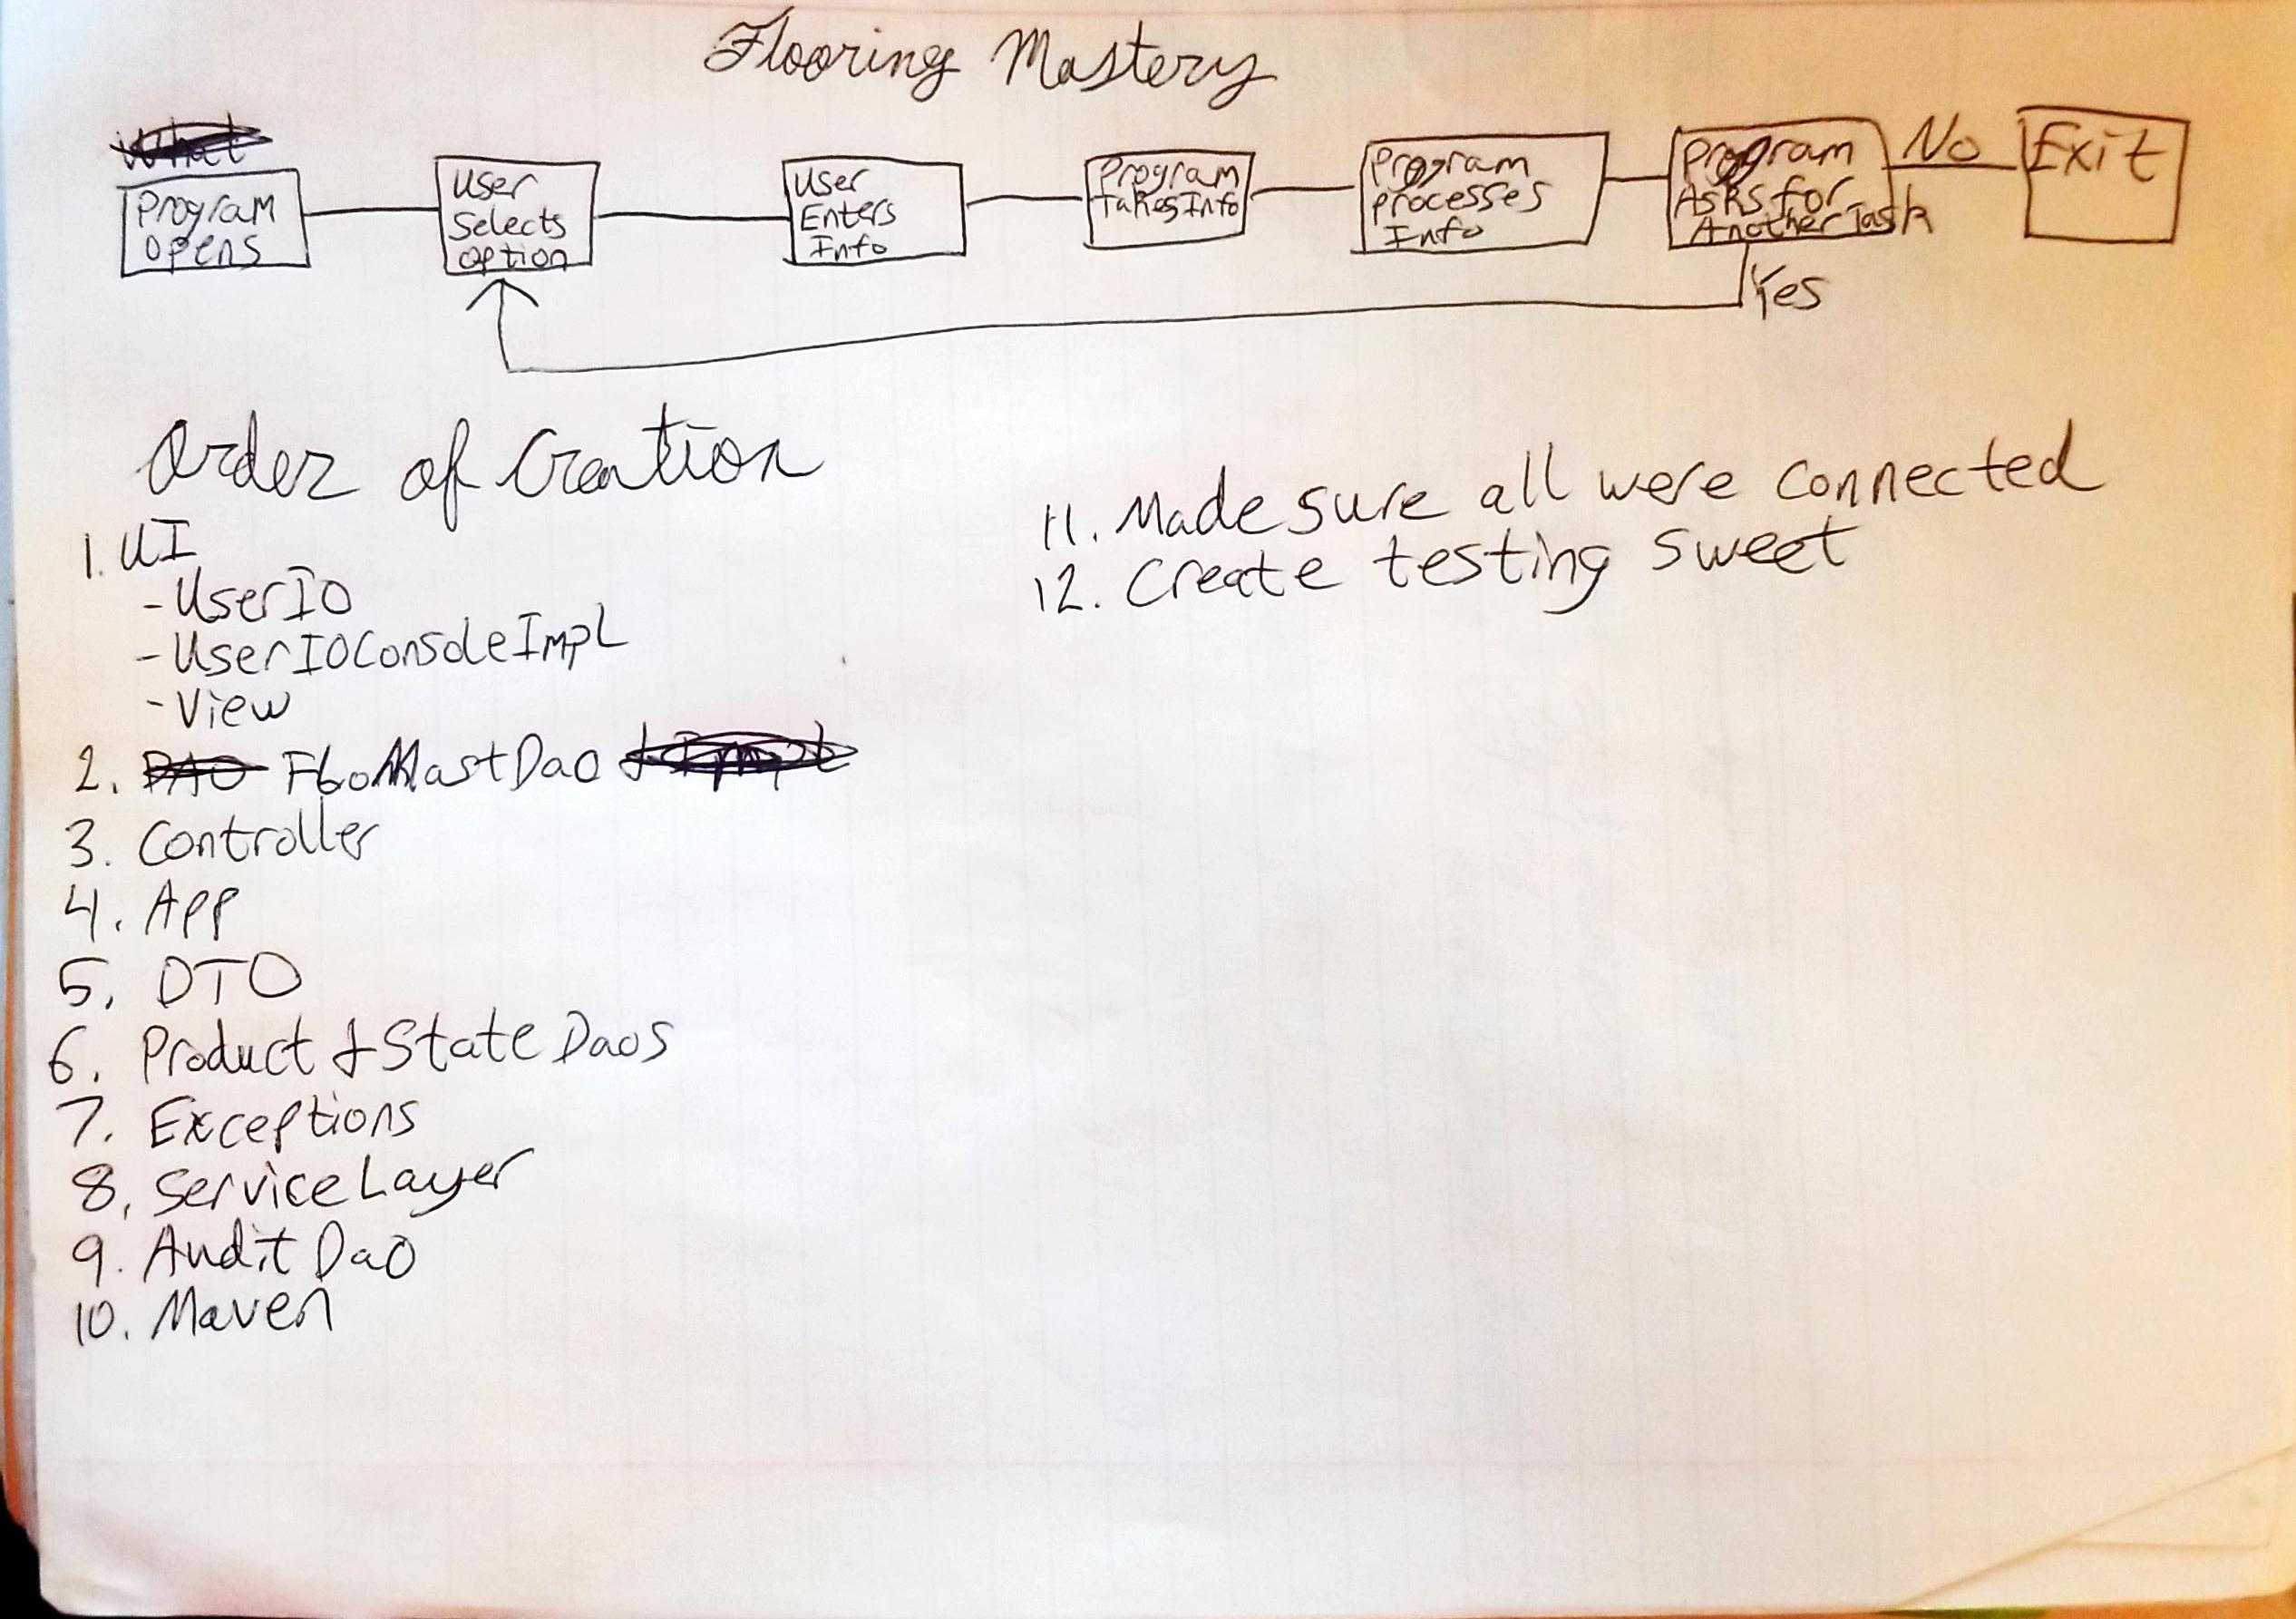 Flooring Mastery
What
Program
Opens
User
Selects
Option
User
Enters
Info
Program
Takes Info
Program
Processes
Info
Program
Asks for
Another Task
No
Exit
Yes
Order of Creation
1. UI
- UserIO
- UserIOConsoleImpl
- View
2. DAO FloMastDao & Impl
3. Controller
4. App
5. DTO
6. Product & State Daos
7. Exceptions
8. Service Layer
9. Audit Dao
10. Maven
11. Made sure all were connected
12. Create testing sweet